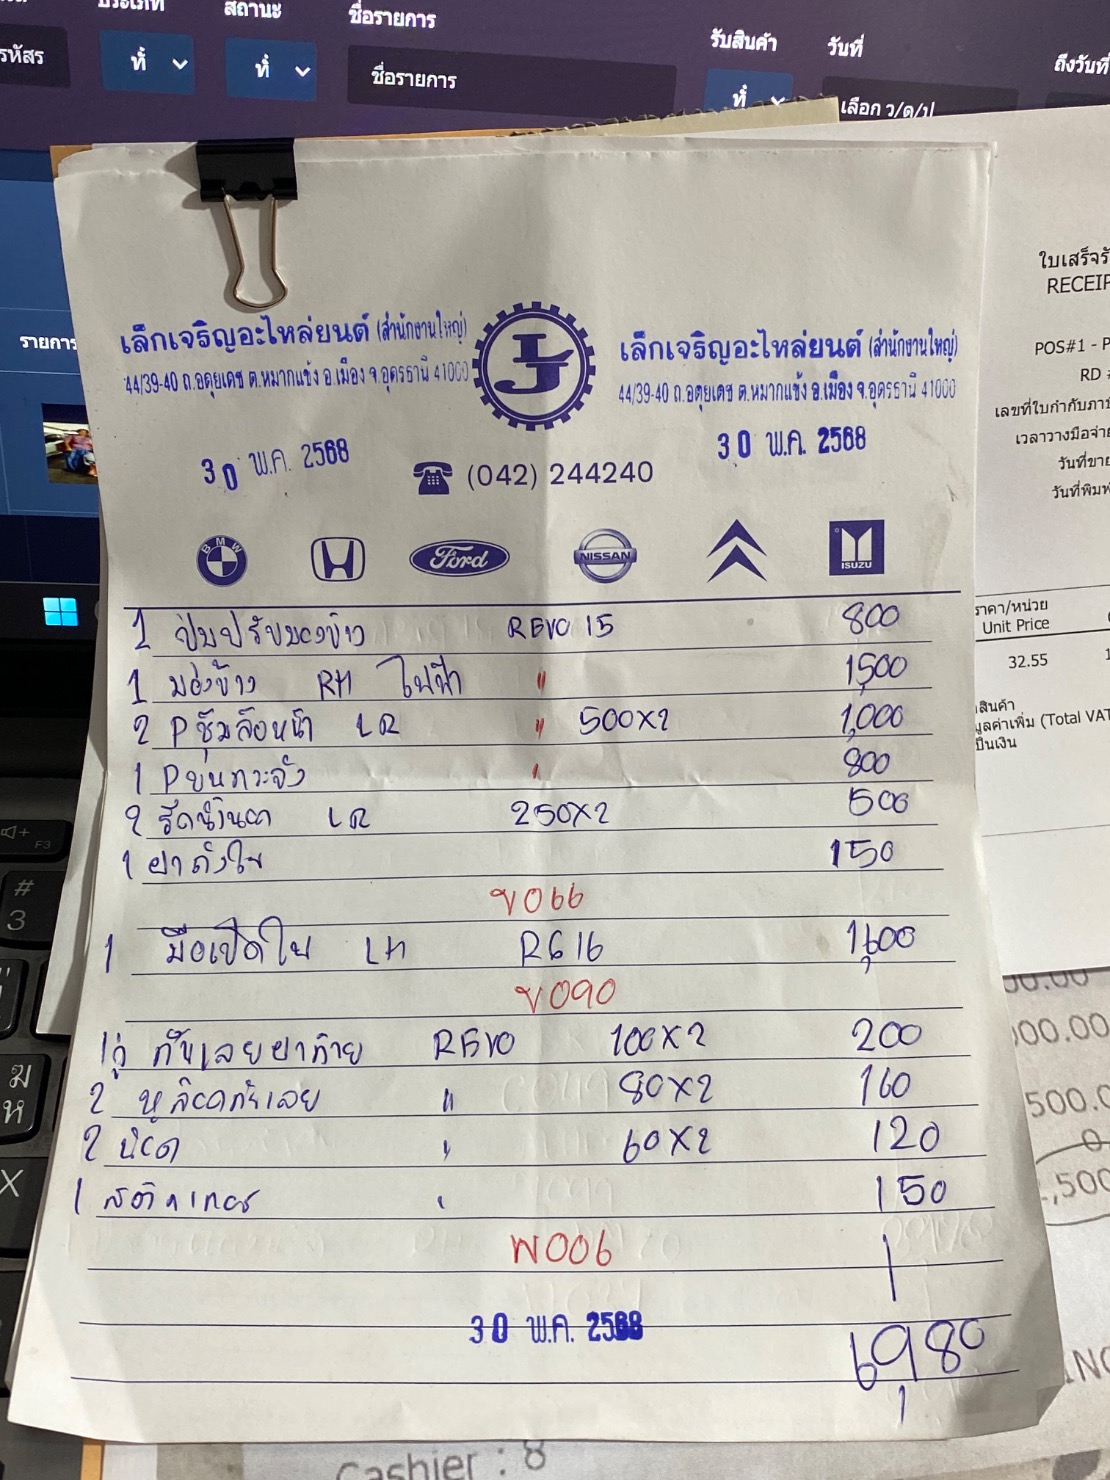 ประเภท สถานะ ชื่อรายการ รับสินค้า วันที่ ถึงวันที่
รหัสร ทั้ ทั้ ชื่อรายการ ทั้ เลือก ว/ด/ป
รายการ
ใบเสร็จรั
RECEIP
POS#1 - P
RD
เลขที่ใบกำกับภาษ
เวลาวางมือจ่าย
วันที่ขาย
วันที่พิมพ์
ราคา/หน่วย
Unit Price
32.55
สินค้า
มูลค่าเพิ่ม (Total VAT
เป็นเงิน
เล็กเจริญอะไหล่ยนต์ (สำนักงานใหญ่)
44/39-40 ถ.อดุยเดช ต.หมากแข้ง อ.เมือง จ.อุดรธานี 41000
LJ
เล็กเจริญอะไหล่ยนต์ (สำนักงานใหญ่)
44/39-40 ถ.อดุยเดช ต.หมากแข้ง อ.เมือง จ.อุดรธานี 41000
30 พ.ค. 2568
30 พ.ค. 2568
(042) 244240
BMW Ford NISSAN ISUZU
1 ปุ่มปรับมองข้าง REVO 15 800
1 มองข้าง RH ไฟฟ้า " 1,500
2 Pซุ้มล้อหน้า LR " 500X2 1,000
1 P " 800
2 LR 250X2 500
1 150
ข066
1 มือเปิดใน LH RG16 1,600
ข090
1คู่ กันเลยฝาท้าย REVO 100X2 200
2 " 80X2 160
2 น๊อต " 60X2 120
1 สติกเกอร์ " 150
W006
30 พ.ค. 2568
6,980
Cashier : 8
F3
#
3
ฆ
ห
X